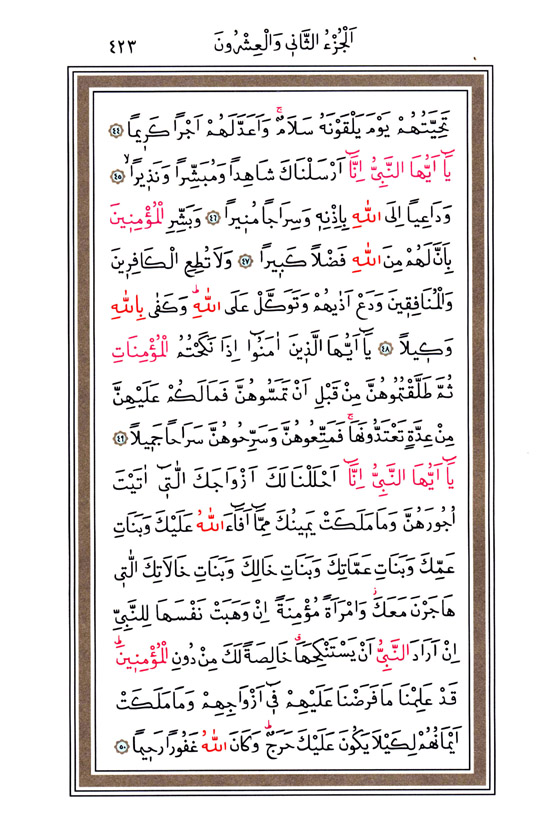 اَلْجُزْءُ الثَّانٖي وَالْعِشْرُونَ
٤٢٣
تَحِيَّتُهُمْ يَوْمَ يَلْقَوْنَهُ سَلَامٌۚ وَاَعَدَّ لَهُمْ اَجْرًا كَرٖيمًا ﴿٤٤﴾
يَٓا اَيُّهَا النَّبِيُّ اِنَّٓا اَرْسَلْنَاكَ شَاهِدًا وَمُبَشِّرًا وَنَذٖيرًاۙ ﴿٤٥﴾
وَدَاعِيًا اِلَى اللّٰهِ بِاِذْنِهٖ وَسِرَاجًا مُنٖيرًا ﴿٤٦﴾ وَبَشِّرِ الْمُؤْمِنٖينَ
بِاَنَّ لَهُمْ مِنَ اللّٰهِ فَضْلًا كَبٖيرًا ﴿٤٧﴾ وَلَا تُطِعِ الْكَافِرٖينَ
وَالْمُنَافِقٖينَ وَدَعْ اَذٰيهُمْ وَتَوَكَّلْ عَلَى اللّٰهِؕ وَكَفٰى بِاللّٰهِ
وَكٖيلًا ﴿٤٨﴾ يَٓا اَيُّهَا الَّذٖينَ اٰمَنُٓوا اِذَا نَكَحْتُمُ الْمُؤْمِنَاتِ
ثُمَّ طَلَّقْتُمُوهُنَّ مِنْ قَبْلِ اَنْ تَمَسُّوهُنَّ فَمَا لَكُمْ عَلَيْهِنَّ
مِنْ عِدَّةٍ تَعْتَدُّونَهَاۚ فَمَتِّعُوهُنَّ وَسَرِّحُوهُنَّ سَرَاحًا جَمٖيلًا ﴿٤٩﴾
يَٓا اَيُّهَا النَّبِيُّ اِنَّٓا اَحْلَلْنَا لَكَ اَزْوَاجَكَ الّٰتٖٓي اٰتَيْتَ
اُجُورَهُنَّ وَمَا مَلَكَتْ يَمٖينُكَ مِمَّٓا اَفَٓاءَ اللّٰهُ عَلَيْكَ وَبَنَاتِ
عَمِّكَ وَبَنَاتِ عَمَّاتِكَ وَبَنَاتِ خَالِكَ وَبَنَاتِ خَالَاتِكَ الّٰتٖي
هَاجَرْنَ مَعَكَؗ وَامْرَاَةً مُؤْمِنَةً اِنْ وَهَبَتْ نَفْسَهَا لِلنَّبِيِّ
اِنْ اَرَادَ النَّبِيُّ اَنْ يَسْتَنْكِحَهَاࣗ خَالِصَةً لَكَ مِنْ دُونِ الْمُؤْمِنٖينَؕ
قَدْ عَلِمْنَا مَا فَرَضْنَا عَلَيْهِمْ فٖٓي اَزْوَاجِهِمْ وَمَا مَلَكَتْ
اَيْمَانُهُمْ لِكَيْلَا يَكُونَ عَلَيْكَ حَرَجٌؕ وَكَانَ اللّٰهُ غَفُورًا رَحٖيمًا ﴿٥٠﴾